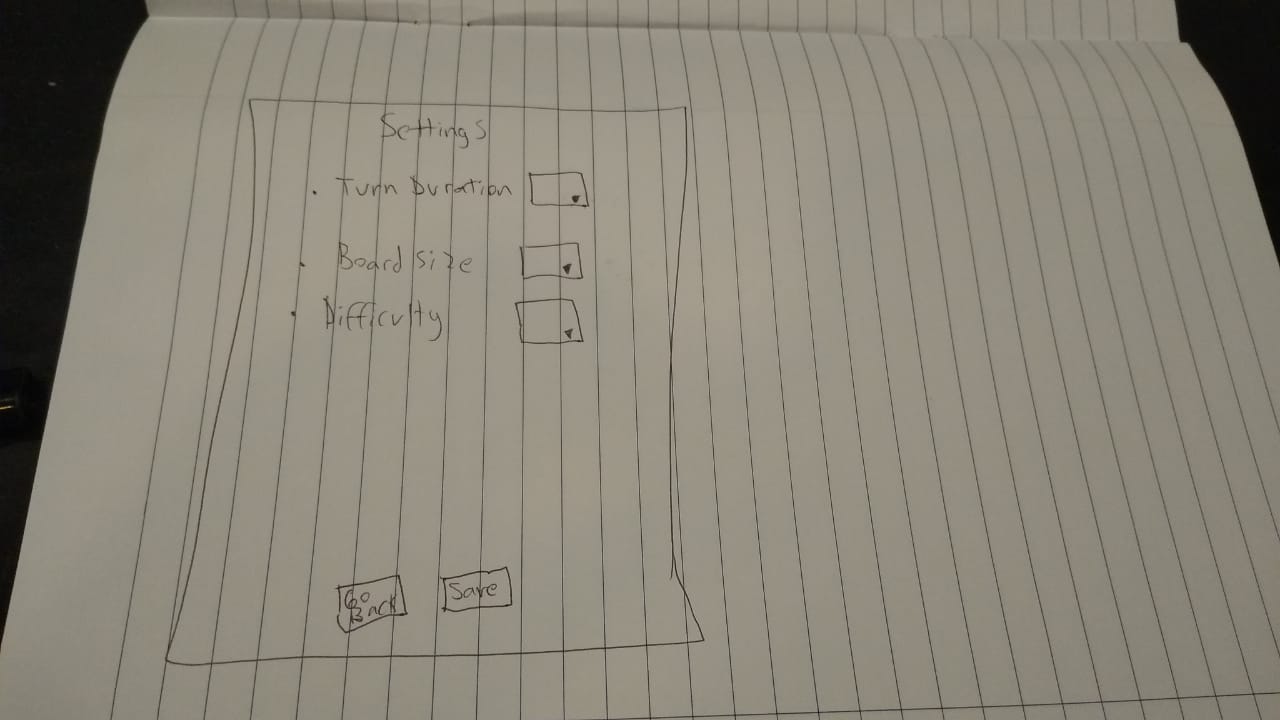 Settings
. Turn Duration
. Board size
. Difficulty
Go
Back
Save